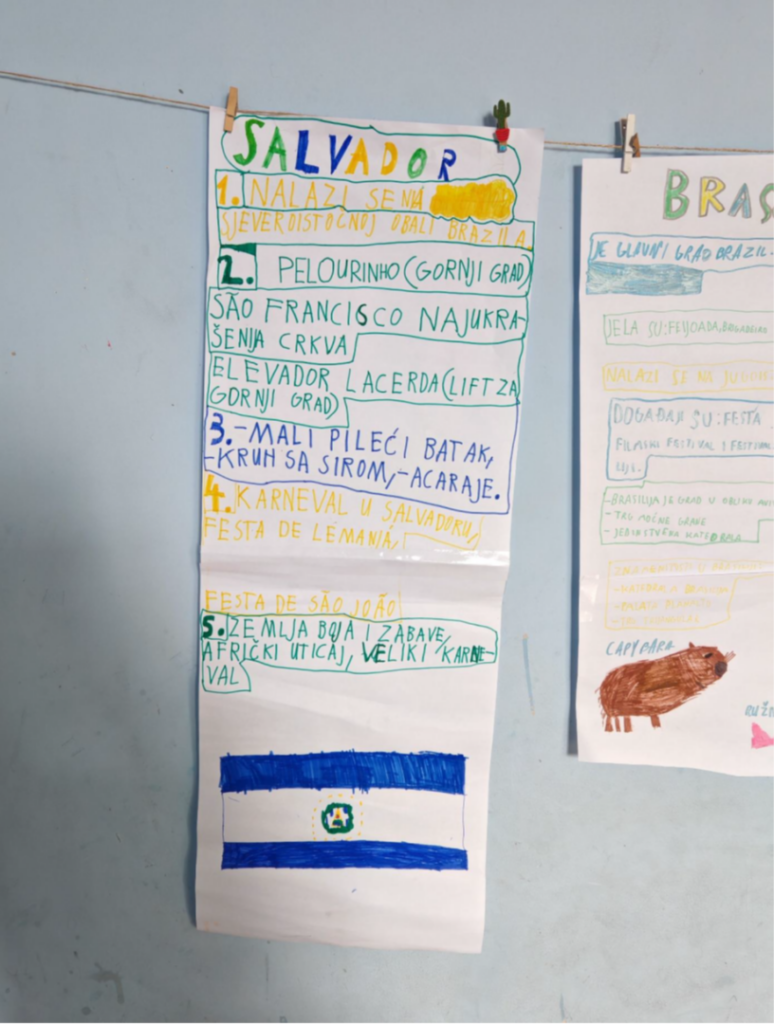 SALVADOR
1. NALAZI SE NA
SJEVEROISTOČNOJ OBALI BRAZILA.
2. PELOURINHO (GORNJI GRAD)
SÃO FRANCISCO NAJUKRA-
ŠENIJA CRKVA
ELEVADOR LACERDA (LIFT ZA
GORNJI GRAD)
3. -MALI PILEĆI BATAK,
-KRUH SA SIROM, -ACARAJE.
4. KARNEVAL U SALVADORU,
FESTA DE LEMANJÁ,
FESTA DE SÃO JOÃO
5. ZEMLJA BOJA I ZABAVE,
AFRIČKI UTICAJ, VELIKI KARNE-
VAL
BRAS
JE GLAVNI GRAD BRAZIL
JELA SU: FEIJOADA,
NALAZI SE NA
DOGAĐAJI SU: FESTA
FILMSKI FESTIVAL I
-BRASILIJA JE GRAD U OBLIKU
- TRG MOĆNE GRANE
- JEDINSTVENA KATEDRALA
CAPYBARA